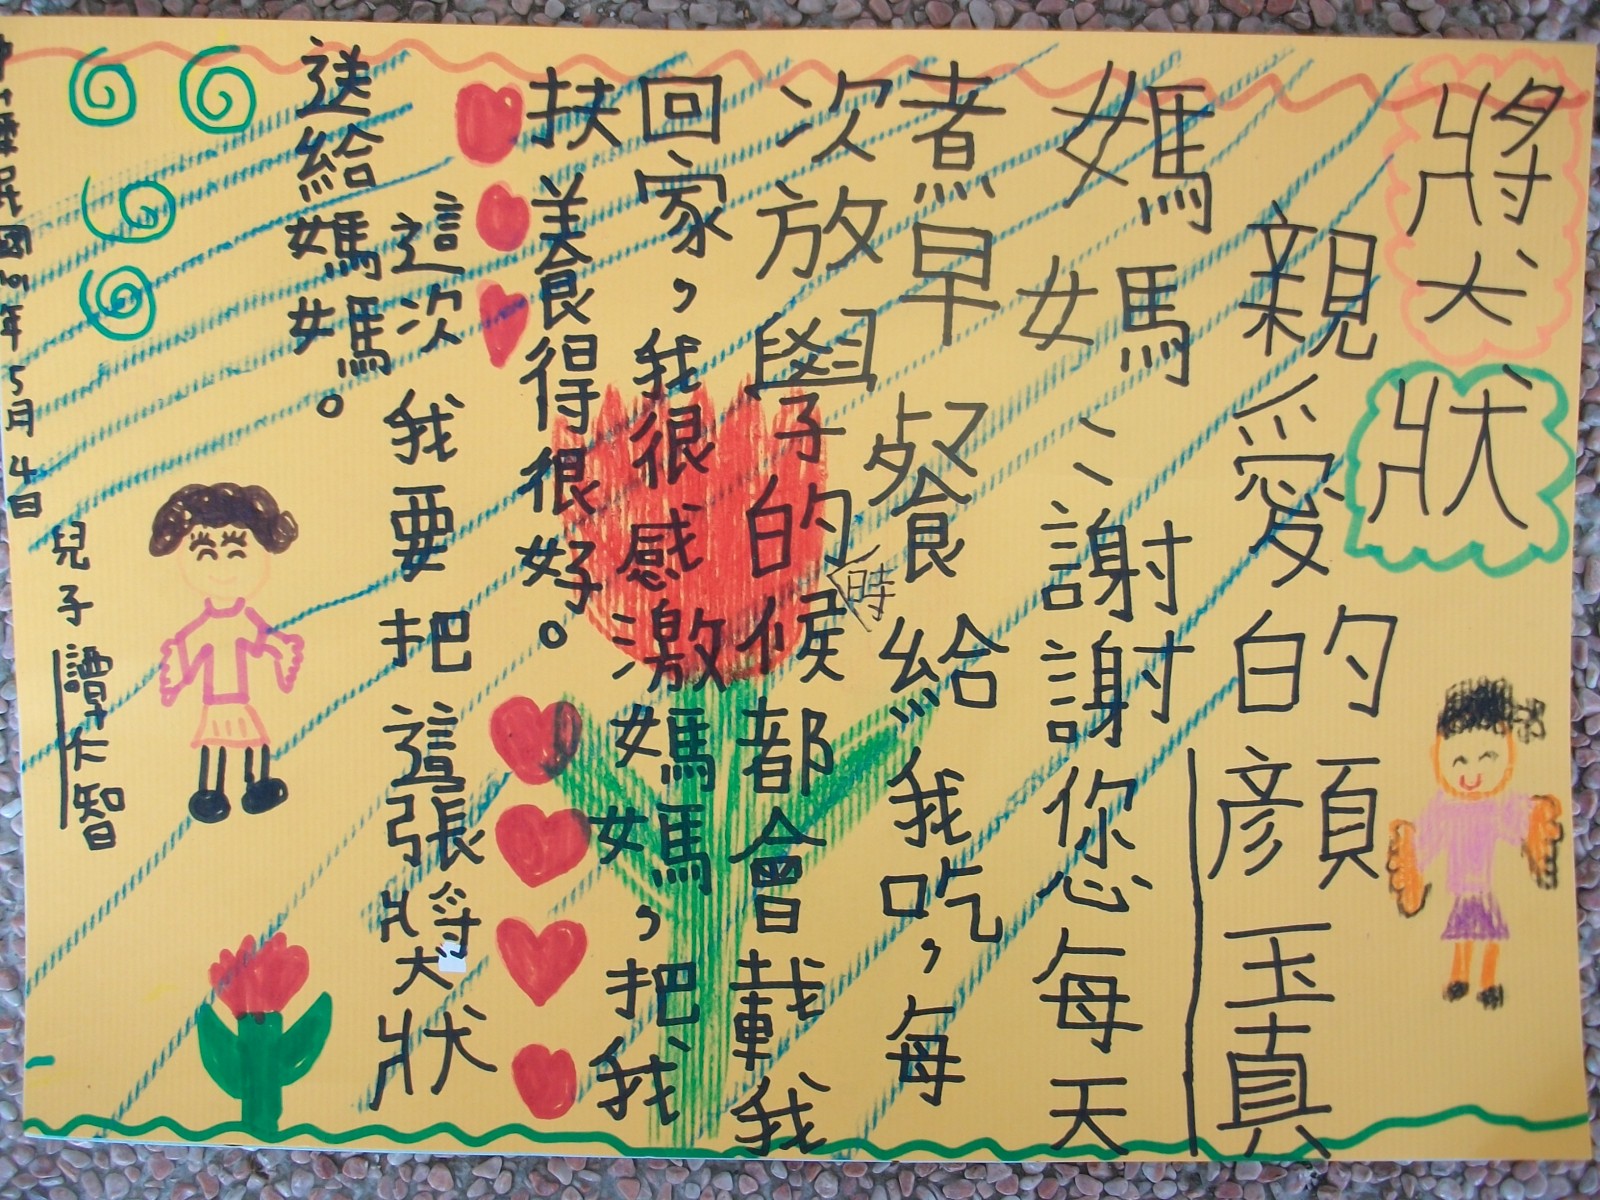 獎狀
親愛的顏玉真
媽媽：謝謝您每天
煮早餐給我吃，每
次放學的時候都會載我
回家，我很感激媽媽，把我
扶養得很好。
這次我要把這張獎狀
送給媽媽。
兒子譚仁智
中華民國101年5月4日